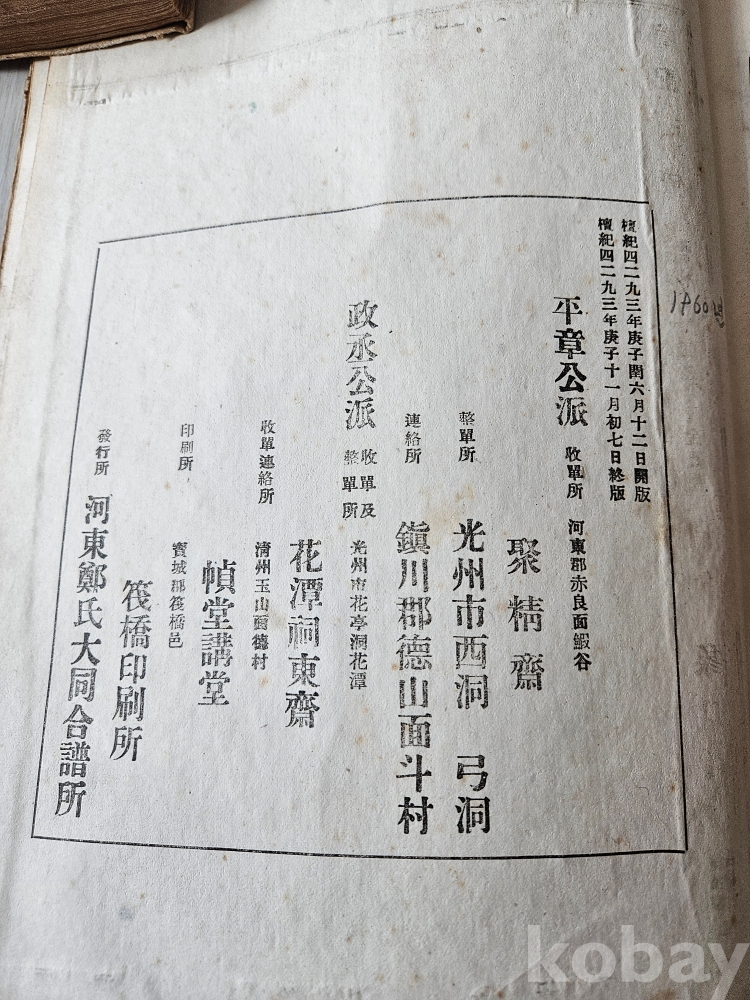 檀紀四二九三年庚子閏六月十二日開版
檀紀四二九三年庚子十一月初七日終版
平章公派 收單所 河東郡赤良面鰕谷
聚精齋
整單所 光州市西洞 弓洞
連絡所 鎭川郡德山面斗村
政丞公派 收單及整單所 光州市花亭洞花潭
花潭祠東齋
收單連絡所 淸州玉山面德村
幀堂講堂
印刷所 寶城郡筏橋邑
筏橋印刷所
發行所 河東鄭氏大同合譜所
1960년
kobay